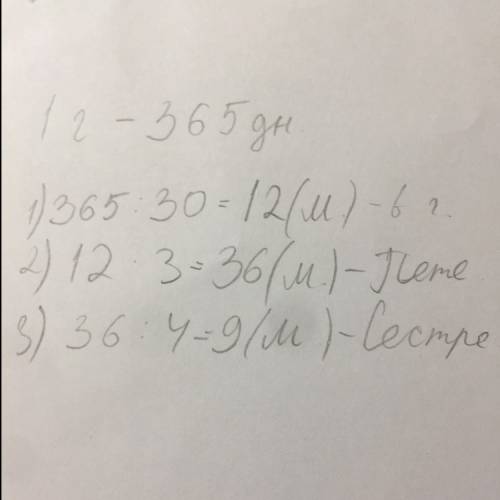 1 г - 365 дн
1) 365 : 30 = 12 (м.) - в г.
2) 12 · 3 = 36 (м.) - Пете
3) 36 : 4 = 9 (м) - Сестре